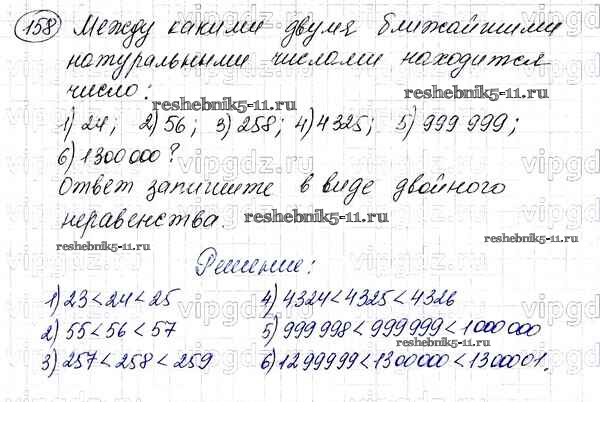 158 Между какими двумя ближайшими
натуральными числами находится
число:
reshebnik5-11.ru
1) 24; 2) 56; 3) 258; 4) 4325; 5) 999 999;
6) 1300 000?
vipgdz.ru
Ответ запишите в виде двойного
неравенства.
reshebnik5-11.ru
reshebnik5-11.ru
Решение:
1) 23 < 24 < 25 4) 4324 < 4325 < 4326
2) 55 < 56 < 57 5) 999 998 < 999 999 < 1 000 000
reshebnik5-11.ru
3) 257 < 258 < 259 6) 1299999 < 1300000 < 1300001.